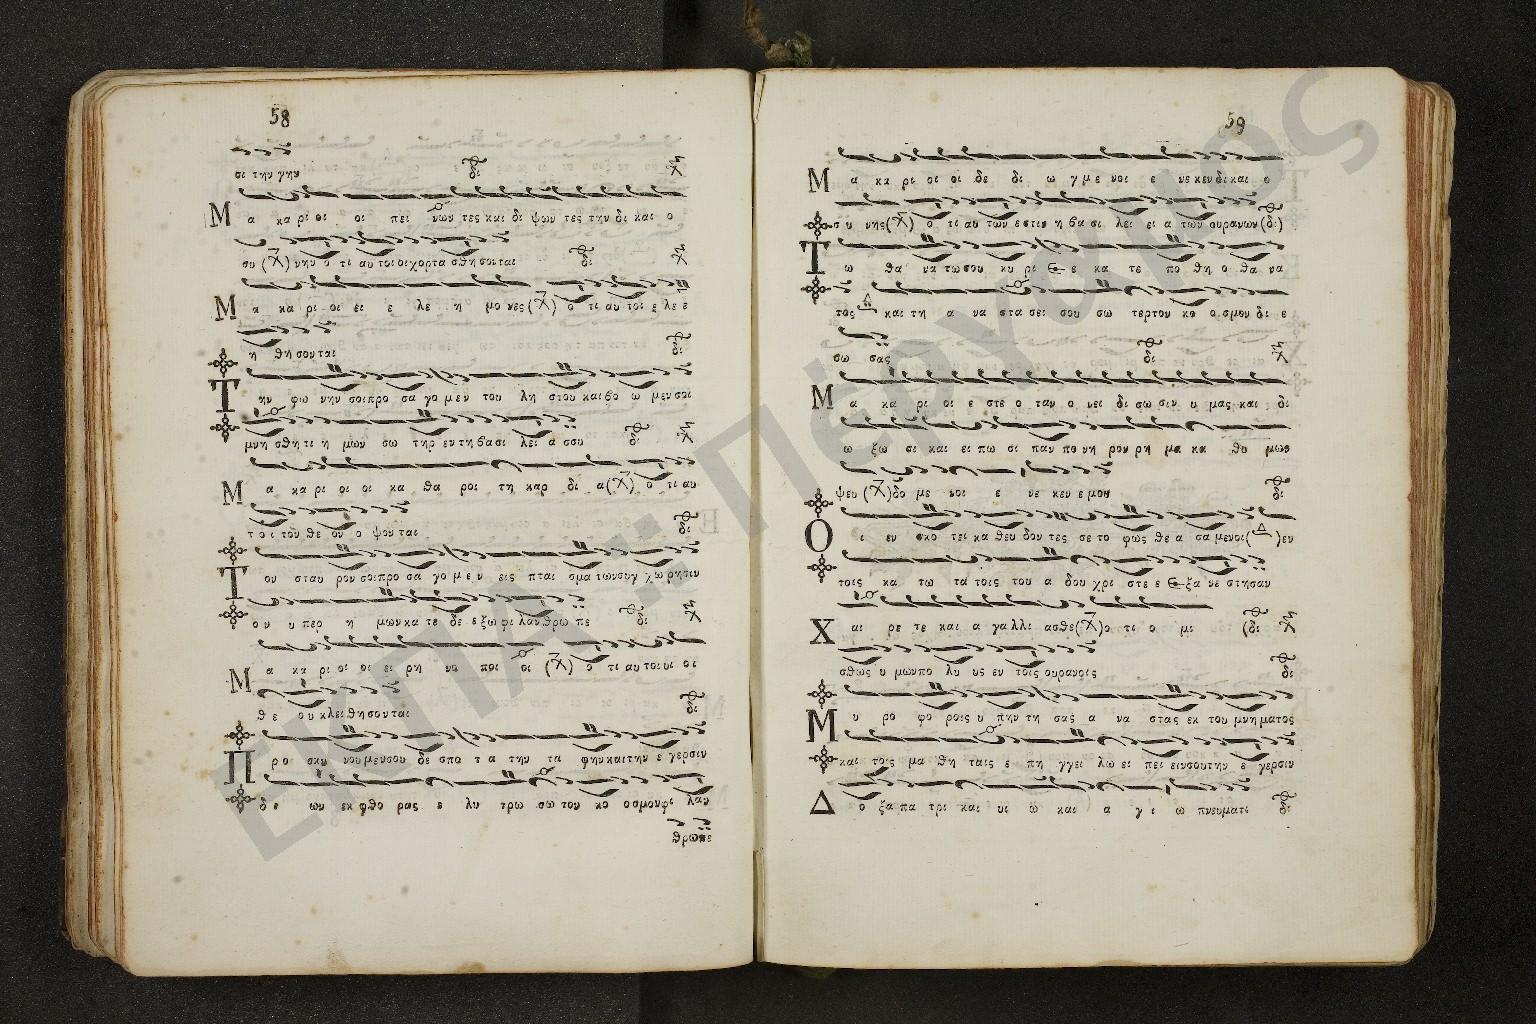 58
σι την γην δι
Μ α κα ρι οι οι πει νων τες και δι ψων τες την δι και ο
συ (χ) νην ο τι αυ τοι οι χορτα σθη σονται δι
Μ α κα ρι οι ει ε λε η μο νες (χ) ο τι αυ τοι ε λε ε
η θη σονται δι
Τ ην φω νην σοι προ σα γο μεν του λη στου και βο ω μεν σοι
μνη σθη τι η μων σω τηρ εν τη βα σι λει α σου δι
Μ α κα ρι οι οι κα θα ροι τη καρ δι α (χ) ο τι αυ
τοι τον θε ον ο ψονται δι
Τ ον σταυ ρον σοι προ σα γο μεν εις πται σμα των συγ χω ρησιν
ον υ περ η μων κα τε δε ξω φι λαν θρω πε δι
Μ α κα ρι οι οι ει ρη νο ποι οι (χ) ο τι αυ τοι υι οι
θε ου κλει θη σονται δι
Π ρο σκυ νου μεν σου δε σπο τα την τα φην και την ε γερσιν
δι ων εκ φθο ρας ε λυ τρω σω τον κο ο σμον φι λαν
θρωπε
59
Μ α κα ρι οι οι δε δι ω γμε νοι ε νε κεν δι και ο
συ νης (χ) ο τι αυ των εστιν η βα σι λει ει α των ουρανων (δι)
Τ ω θα να τω σου κυ ρι ε ε κα τε πο θη ο θα να
τος και τη α να στα σει σου σω τερ τον κο ο σμον δι ε
σω σας δι
Μ α κα ρι οι ε στε ο ταν ο νει δι σω σιν υ μας και δι
ω ξω σι και ει πω σι παν πο νη ρον ρη μα κα θυ μων
ψευ (χ) δο με νοι ε νε κεν ε μου δι
Ο ι εν σκο τει κα θευ δον τες σε το φως θε α σα μενοι (Δ) εν
τοις κα τω τα τοις του α δου χρι στε ε ε ξα νε στησαν
Χ αι ρε τε και α γαλλι ασθε (χ) ο τι ο μι (δι
σθως υ μων πο λυ υς εν τοις ουρανοις δι
Μ υ ρο φο ροις υ πην τη σας α να στας εκ του μνη ματος
και τοις μα θη ταις ε πη γγει λω ει πει ειν σου την ε γερσιν
Δ ο ξα πα τρι και υι ω και α γι ω πνευματι δι
ΕΚΠΑ :: Πέργαμος